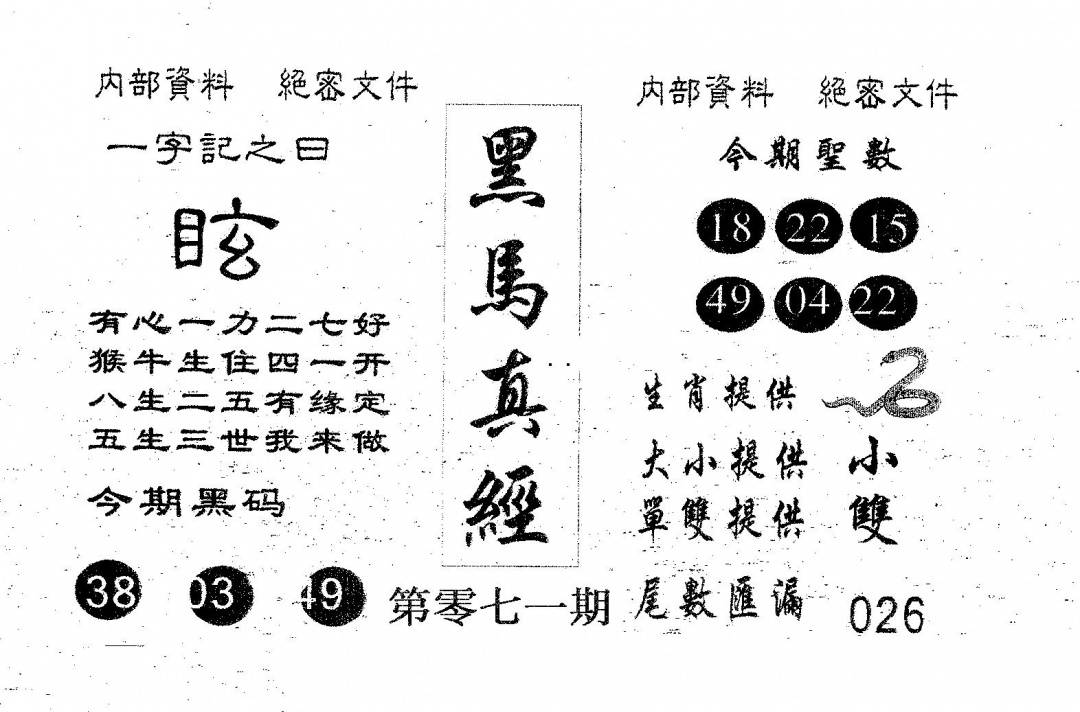 内部資料 絕密文件
一字記之曰
眩
有心一力二七好
猴牛生住四一开
八生二五有缘定
五生三世我来做
今期黑码
38 03 49
黑馬真經
第零七一期
内部資料 絕密文件
今期聖數
18 22 15
49 04 22
生肖提供
大小提供 小
單雙提供 雙
尾數匯漏 026